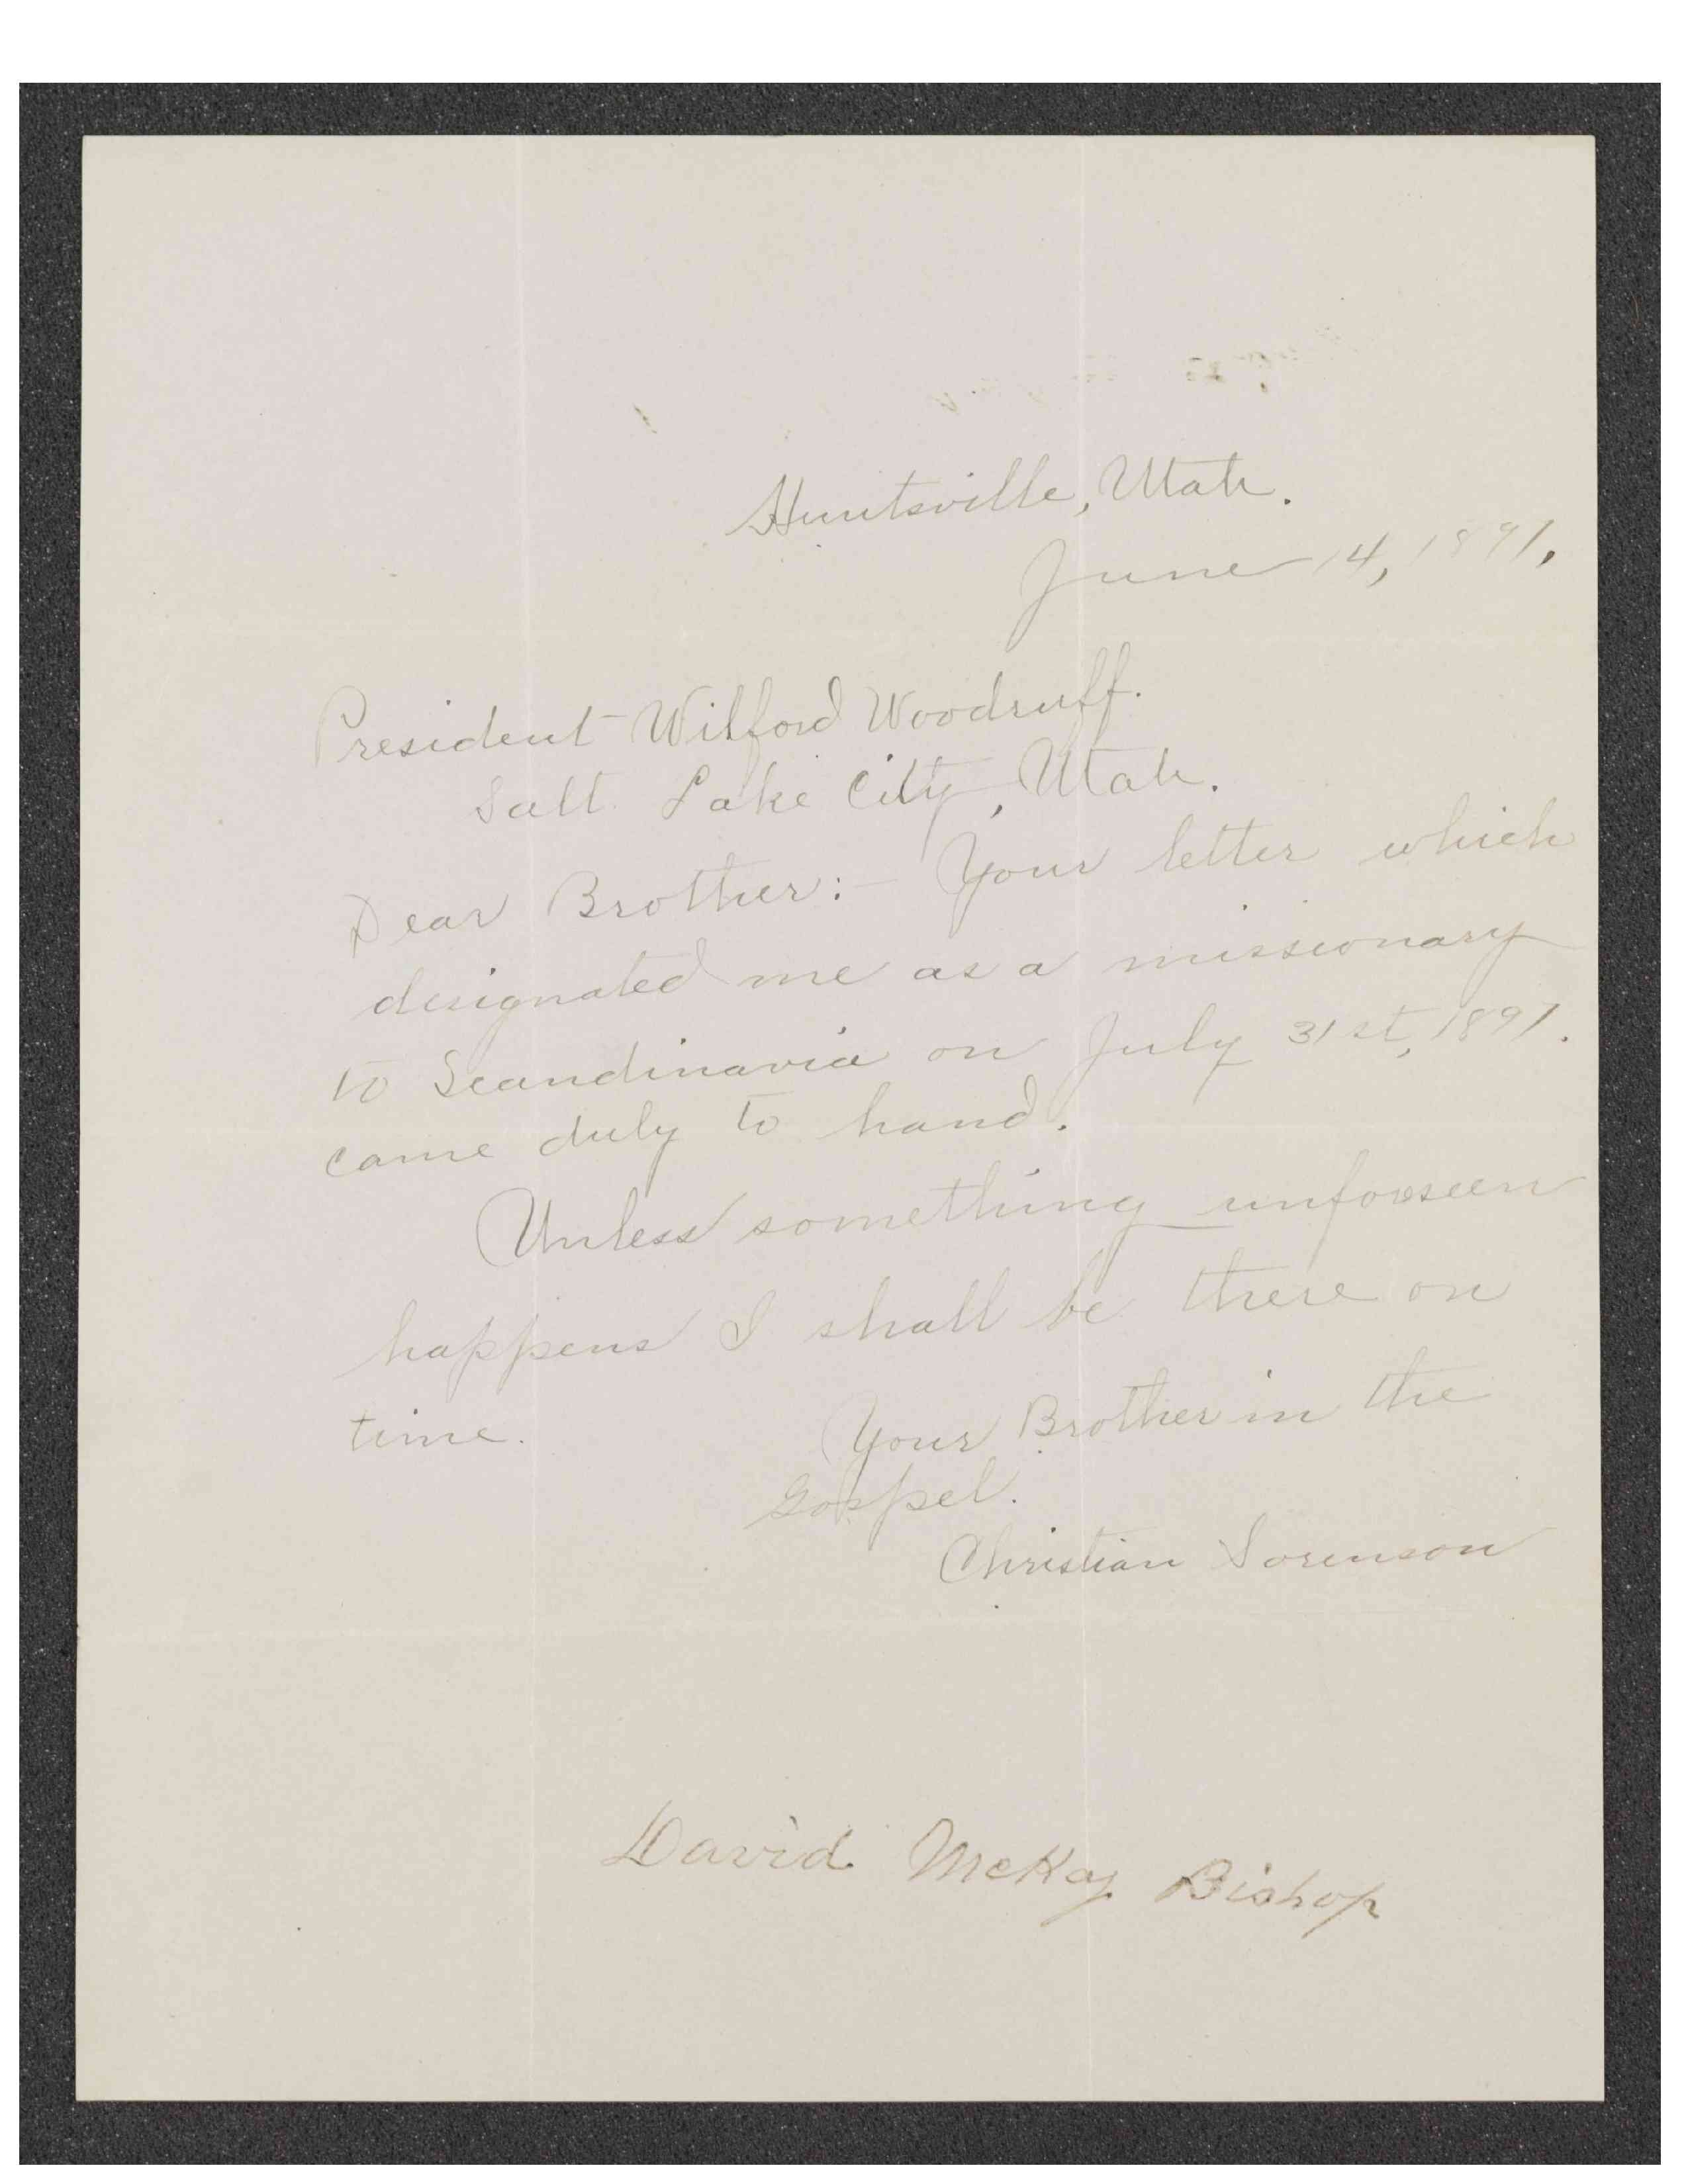 Huntsville, Utah.
June 14, 1891.
President Wilford Woodruff.
Salt Lake City, Utah.
Dear Brother:— Your letter which
designated me as a missionary
to Scandinavia on July 31st, 1891.
came duly to hand.
Unless something unforseen
happens I shall be there on
time. Your Brother in the
Gospel.
Christian Sorenson
David McKay Bishop